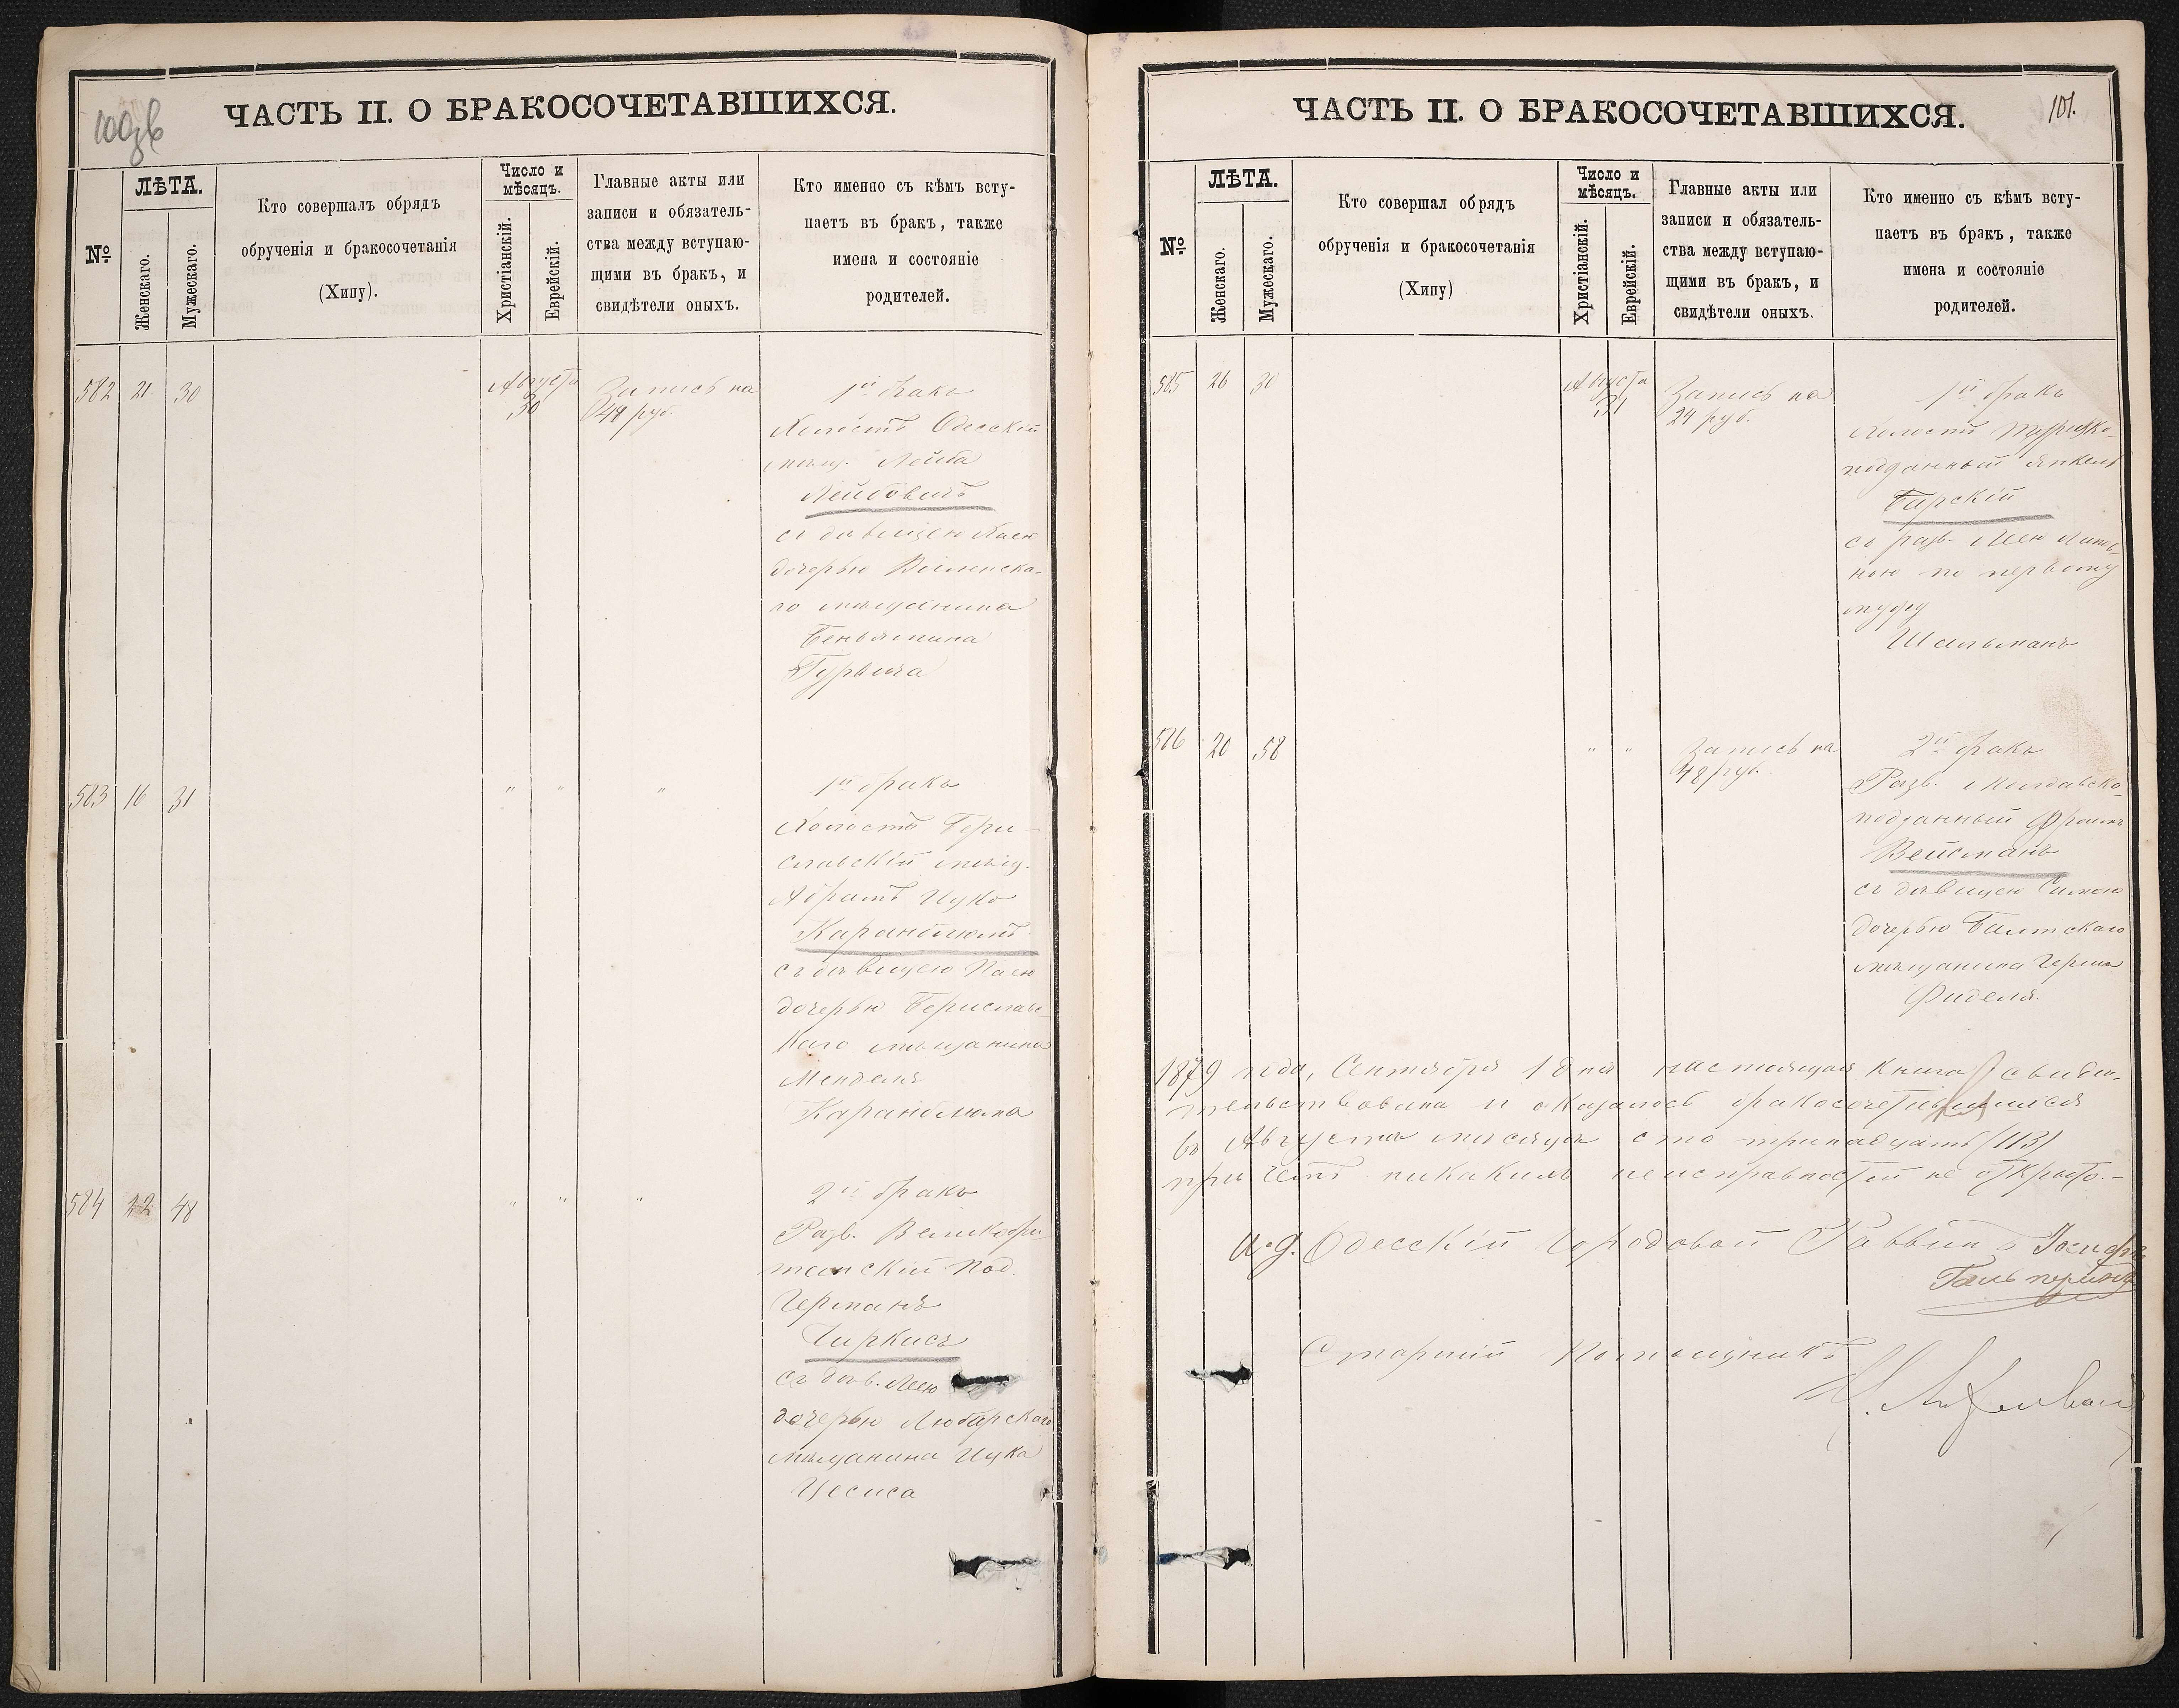 100об
ЧАСТЬ II. О БРАКОСОЧЕТАВШИХСЯ.
№
ЛѢТА.
Женскаго.
Мужескаго.
Кто совершалъ обрядъ
обрученія и бракосочетанія
(Хипу).
Число и
мѣсяцъ.
Христіанскій.
Еврейскій.
Главные акты или
записи и обязатель-
ства между вступаю-
щими въ бракъ, и
свидѣтели оныхъ.
Кто именно съ кѣмъ всту-
паетъ въ бракъ, также
имена и состояніе
родителей.
582 21 30
Августа
30
Запись на
48 руб.
1й бракъ
Холостъ Одесскій
мѣщ. Лейба
Лейбовичъ
съ дѣвицею Хаею
дочерью Виленска-
го мѣщанина
Беньямина
Гурвича
583 16 31 " " "
1й бракъ
Холостъ Бери-
славскій мѣщ.
Абрамъ Ицко
Карантлютъ
съ дѣвицею Хаею
дочерью Бериславс-
каго мѣщанина
Менделя
584 22 48 " " "
2й бракъ
Разв. Великобри-
танскій под.
Германъ
Чиркисъ
съ дѣв. Леею
дочерью Любарскаго
мѣщанина Ицка
Цесиса
101.
ЧАСТЬ II. О БРАКОСОЧЕТАВШИХСЯ.
№
ЛѢТА.
Женскаго.
Мужескаго.
Кто совершал обрядъ
обрученія и бракосочетанія
(Хипу)
Число и
мѣсяцъ.
Христіанскій.
Еврейскій.
Главные акты или
записи и обязатель-
ства между вступаю-
щими въ бракъ, и
свидѣтели оныхъ.
Кто именно съ кѣмъ всту-
паетъ въ бракъ, также
имена и состояніе
родителей.
585 26 30
Августа
31
Запись на
24 руб.
1й бракъ
Холостъ Турецко-
подданный Янкель
Барскій
съ разв. Леею
ною по первому
мужу
Шильманъ
586 20 58 " "
Запись на
48 руб.
2й бракъ
Разв. Молдавско-
подданный Фроимъ
Вейсманъ
съ дѣвицею Симою
дочерью Балтскаго
мѣщанина Герша
Фиделя.
1879 года, Сентября 1 дня настоящая книга свидѣ-
тельствована и оказалось бракосочетавшихся
въ Августѣ мѣсяцѣ сто тринадцать (113)
при чемъ никакихъ неисправностей не открыто.-
И.д. Одесскій Городовой Раввинъ Іосифъ
Гальперинъ
Старшій Помощникъ